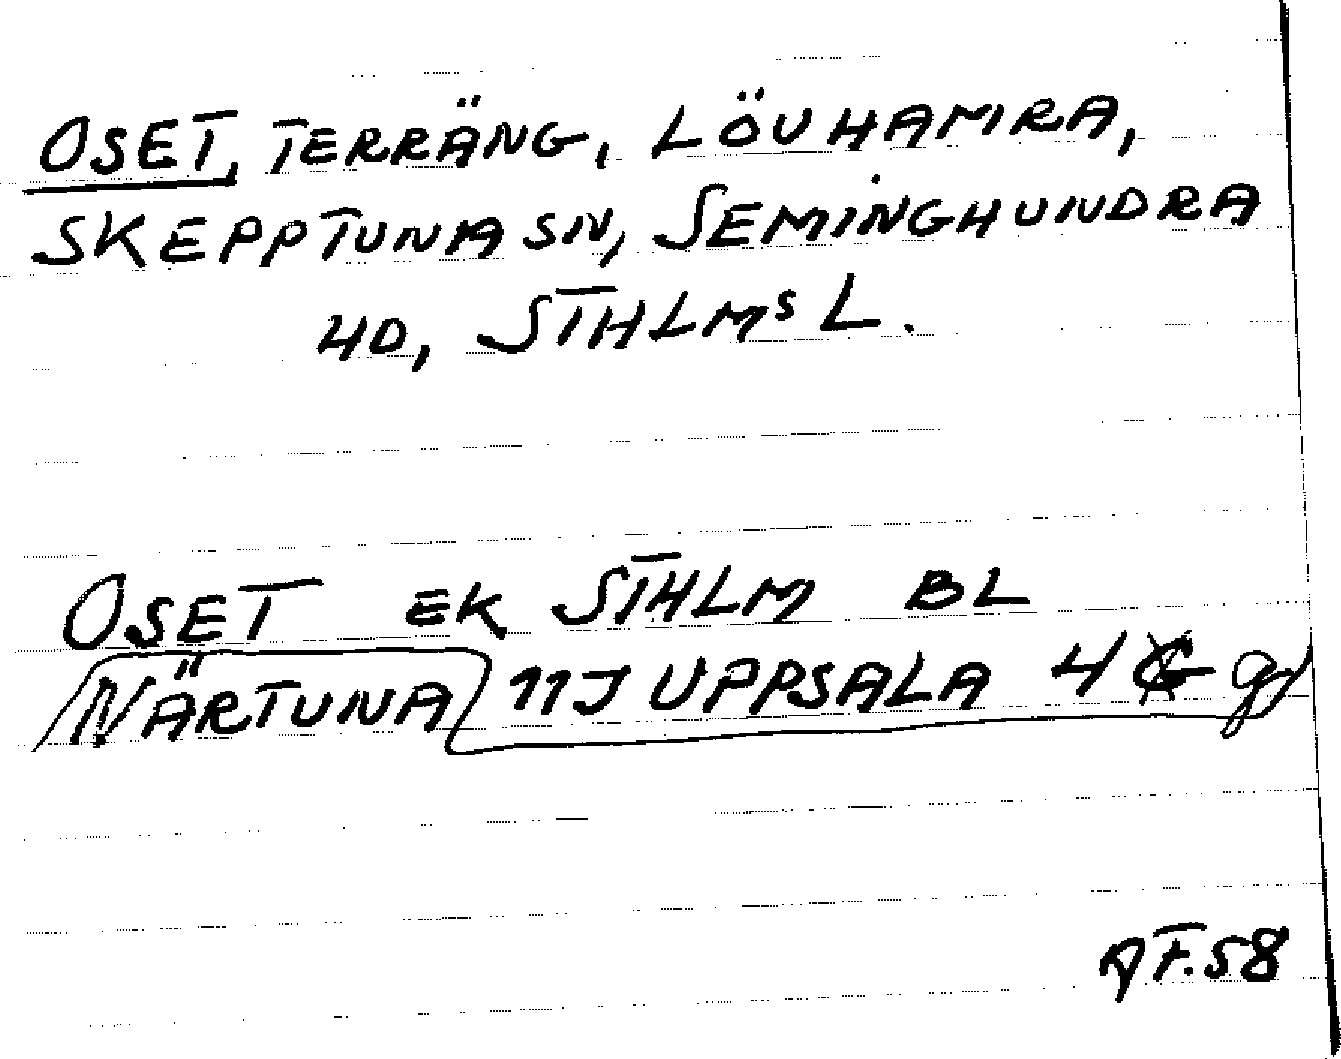 OSET, TERRÄNG, LÖVHAMRA,
SKEPPTUNA SN, SEMINGHUNDRA
HD, STHLMS L.
OSET EK STHLM BL
NÄRTUNA 11J UPPSALA 4 g